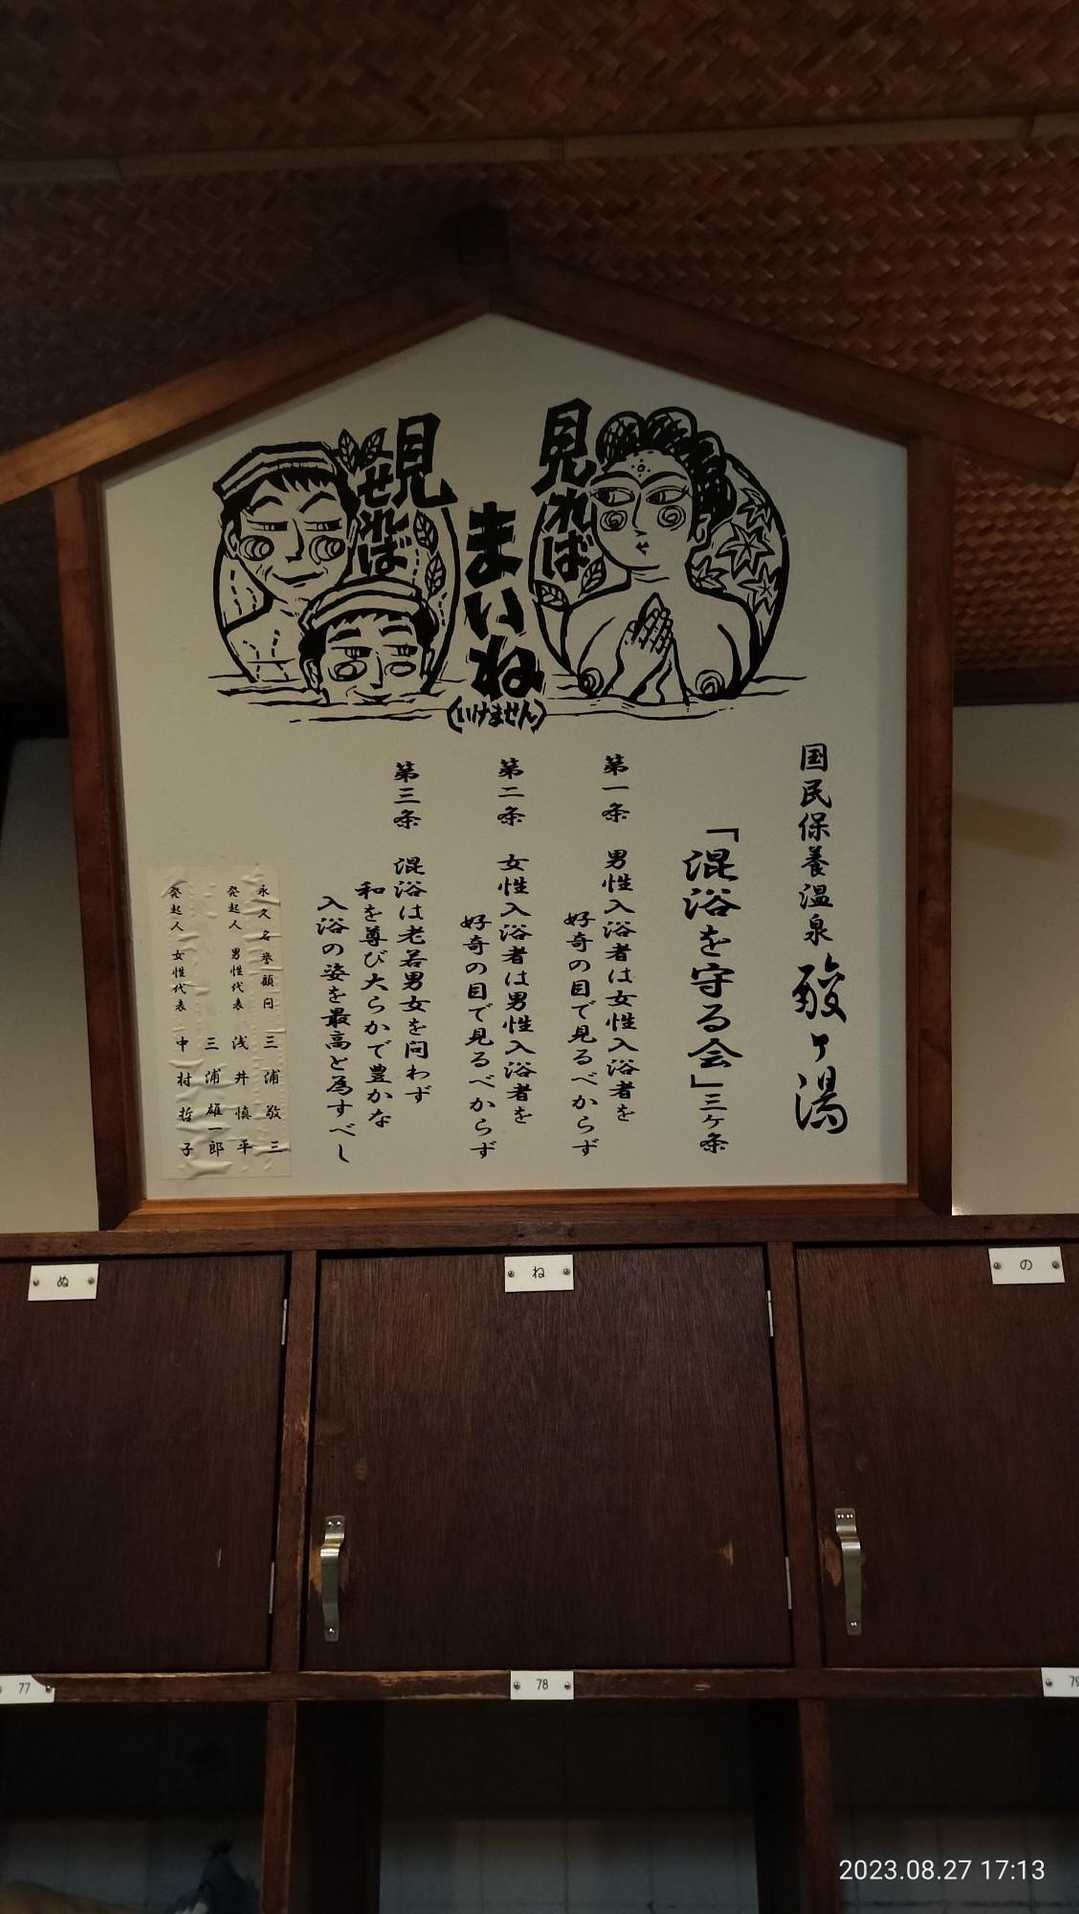 見れば
見せれば
まいね
(いけません)
国民保養温泉 酸ヶ湯
「混浴を守る会」三ヶ条
第一条 男性入浴者は女性入浴者を
好奇の目で見るべからず
第二条 女性入浴者は男性入浴者を
好奇の目で見るべからず
第三条 混浴は老若男女を問わず
和を尊び大らかで豊かな
入浴の姿を最高と為すべし
永久名誉顧問 三浦敬三
発起人 男性代表 浅井慎平
三浦雄一郎
発起人 女性代表 中村哲子
ぬ
ね
の
77
78
79
2023.08.27 17:13